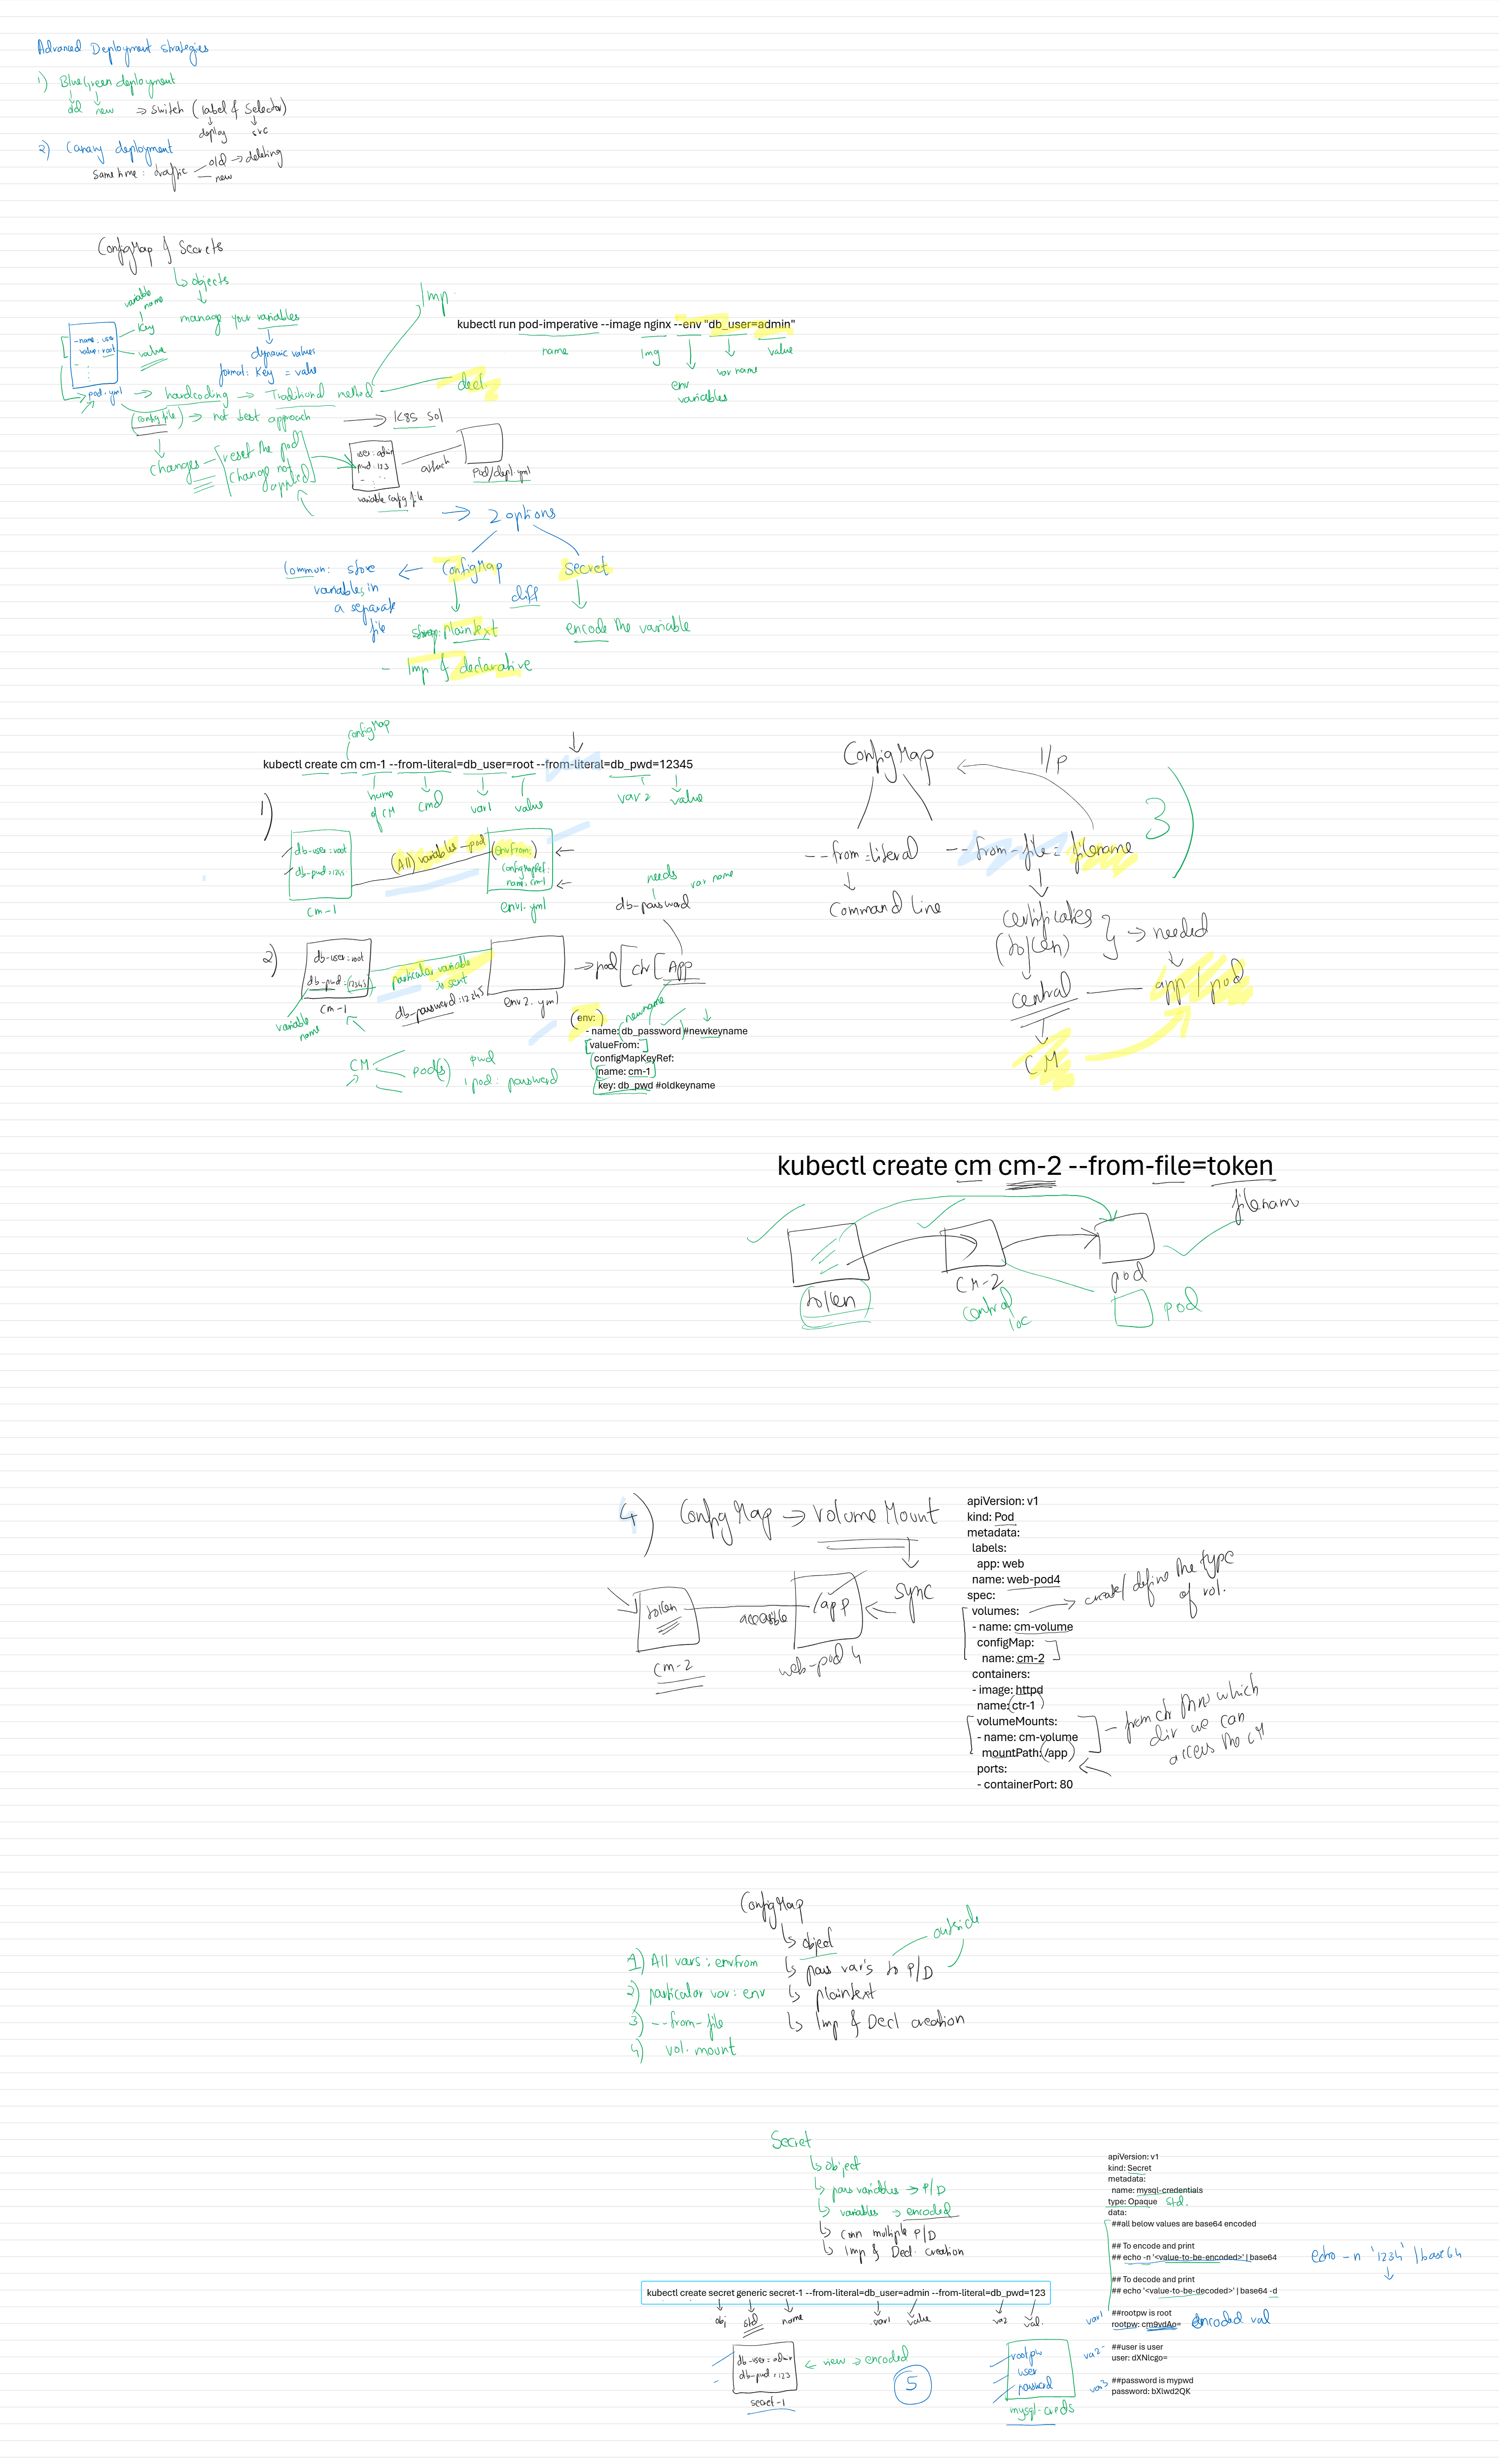 Advanced Deployment strategies
1) Blue/Green deployment
old new → switch (label & selector)
deploy svc
2) Canary deployment
Same time: traffic
old → deleting
new
ConfigMap & Secrets
↳ objects
manage your variables
dynamic values
format: Key = value
variable name
Key
value
- name: user
value: root
pod.yml → hardcoding → Traditional method
Imp.
decl.
(config file) → not best approach → K8S Sol
changes
reset the pod
change not applied
user: admin
pwd: 123
variable config file
attach
Pod/depl.yml
kubectl run pod-imperative --image nginx --env "db_user=admin"
name
Img
env variables
var name
value
→ 2 options
ConfigMap
Secret
diff
Common: store variables in a separate file
plaintext
encode the variable
- Imp & declarative
configMap
kubectl create cm cm-1 --from-literal=db_user=root --from-literal=db_pwd=12345
name of CM
cmd
var1
value
var2
value
1)
db-user: root
db-pwd: 12345
cm-1
(All) variables → pod
(envFrom:)
configMapRef:
name: cm-1
env1.yml
2)
db-user: root
db-pwd: 12345
cm-1
variable name
particular variable is sent
db-password: 12345
env2.yml
→ pod [ ctr [ App
needs
var name
db-password
newname
(env:)
- name: db_password #newkeyname
valueFrom:
configMapKeyRef:
name: cm-1
key: db_pwd #oldkeyname
CM
pod(s)
pwd
1 pod: password
ConfigMap
I/P
--from=literal
Command Line
--from-file=filename
3)
certificates
(token)
} → needed
central
app/pod
CM
kubectl create cm cm-2 --from-file=token
filenam
token
cm-2
central loc
pod
pod
4) ConfigMap → Volume Mount
Sync
token
cm-2
accessible
/app
web-pod4
apiVersion: v1
kind: Pod
metadata:
labels:
app: web
name: web-pod4
spec:
volumes:
- name: cm-volume
configMap:
name: cm-2
containers:
- image: httpd
name: ctr-1
volumeMounts:
- name: cm-volume
mountPath: /app
ports:
- containerPort: 80
create/define the type of vol.
from ctr thru which dir we can access the CM
ConfigMap
↳ object
↳ pass var's to P/D
outside
↳ plaintext
↳ Imp & Decl creation
1) All vars: envfrom
2) particular var: env
3) --from-file
4) vol. mount
Secret
↳ object
↳ pass variables → P/D
↳ variables → encoded
↳ conn multiple P/D
↳ Imp & Decl. creation
kubectl create secret generic secret-1 --from-literal=db_user=admin --from-literal=db_pwd=123
obj
std
name
var1
value
var2
val.
db-user: admin
db-pwd: 123
secret-1
← view → encoded
5
rootpw
user
password
mysql-creds
apiVersion: v1
kind: Secret
metadata:
name: mysql-credentials
type: Opaque std.
data:
##all below values are base64 encoded
## To encode and print
## echo -n '<value-to-be-encoded>' | base64
## To decode and print
## echo '<value-to-be-decoded>' | base64 -d
##rootpw is root
var1 rootpw: cm9vdAo= Encoded val
var2 ##user is user
user: dXNlcgo=
var3 ##password is mypwd
password: bXlwd2QK
echo -n '1234' | base64